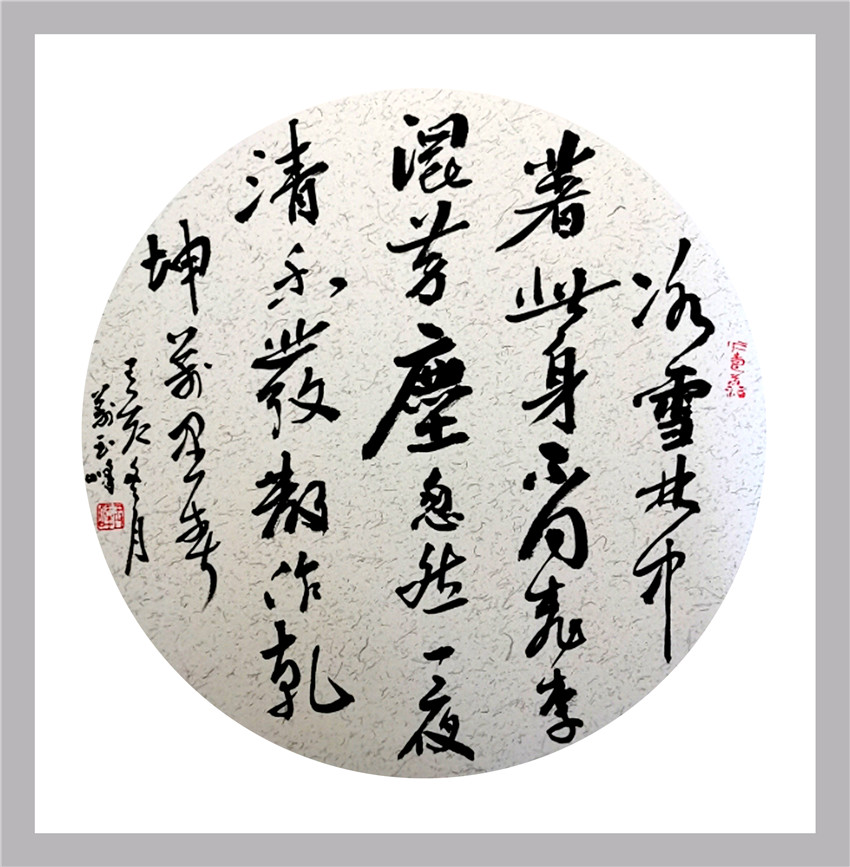 冰雪林中
著此身不同桃李
混芳塵忽然一夜
清香發散作乾
坤萬里春
冬月
玉峰